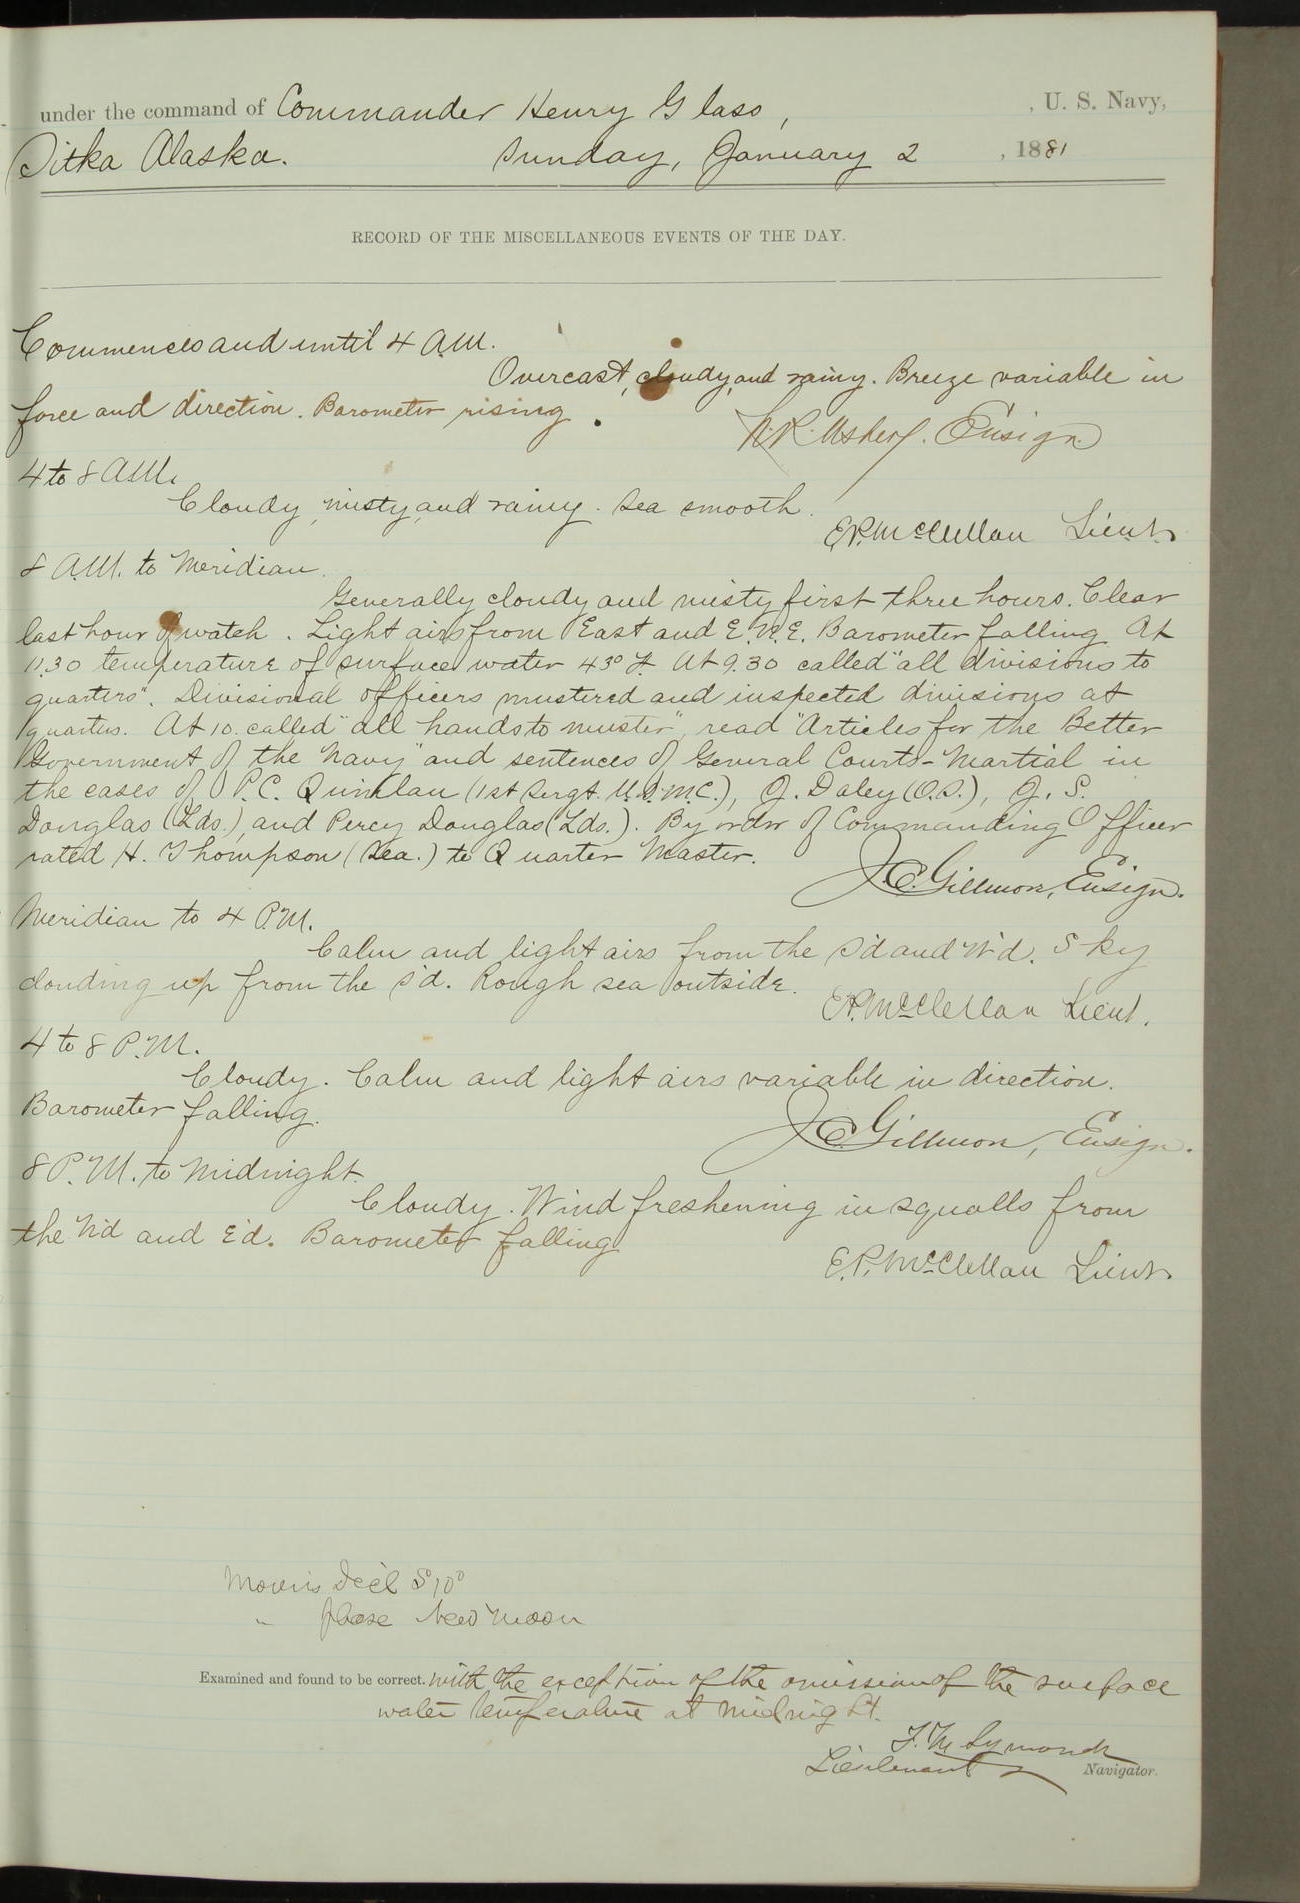 under the command of Commander Henry Glass, , U. S. Navy,
Sitka Alaska. Sunday, January 2 , 1881
RECORD OF THE MISCELLANEOUS EVENTS OF THE DAY.
Commences and until 4 A.M.
Overcast, cloudy, and rainy. Breeze variable in
force and direction. Barometer rising.
N.R. Usher. Ensign
4 to 8 A.M.
Cloudy, misty, and rainy. Sea smooth.
E.P. McClellan Lieut.
8 A.M. to Meridian.
Generally cloudy and misty first three hours. Clear
last hour of watch. Light airs from East and E.N.E. Barometer falling. At
11.30 temperature of surface water 43° F. At 9.30 called "all divisions to
quarters". Divisional officers mustered and inspected divisions at
quarters. At 10. called "all hands to muster", read "Articles for the Better
Government of the Navy" and sentences of General Courts-Martial in
the cases of P.C. Quinlan (1st Sergt. U.S.M.C.), J. Daley (O.S.), J. S.
Douglas (Lds.), and Percy Douglas (Lds.). By order of Commanding Officer
rated H. Thompson (Sea.) to Quarter Master.
J.C. Gillmore, Ensign.
Meridian to 4 P.M.
Calm and light airs from the S'd and W'd. Sky
clouding up from the S'd. Rough sea outside.
E.P. McClellan Lieut.
4 to 8 P.M.
Cloudy. Calm and light airs variable in direction.
Barometer falling.
J.C. Gillmore, Ensign.
8 P.M. to Midnight.
Cloudy. Wind freshening in squalls from
the N'd and E'd. Barometer falling
E.P. McClellan Lieut.
Moon's Decl S 10°
" phase New Moon
Examined and found to be correct. with the exception of the omission of the surface
water temperature at midnight.
F. M. Symonds
Lieutenant Navigator.